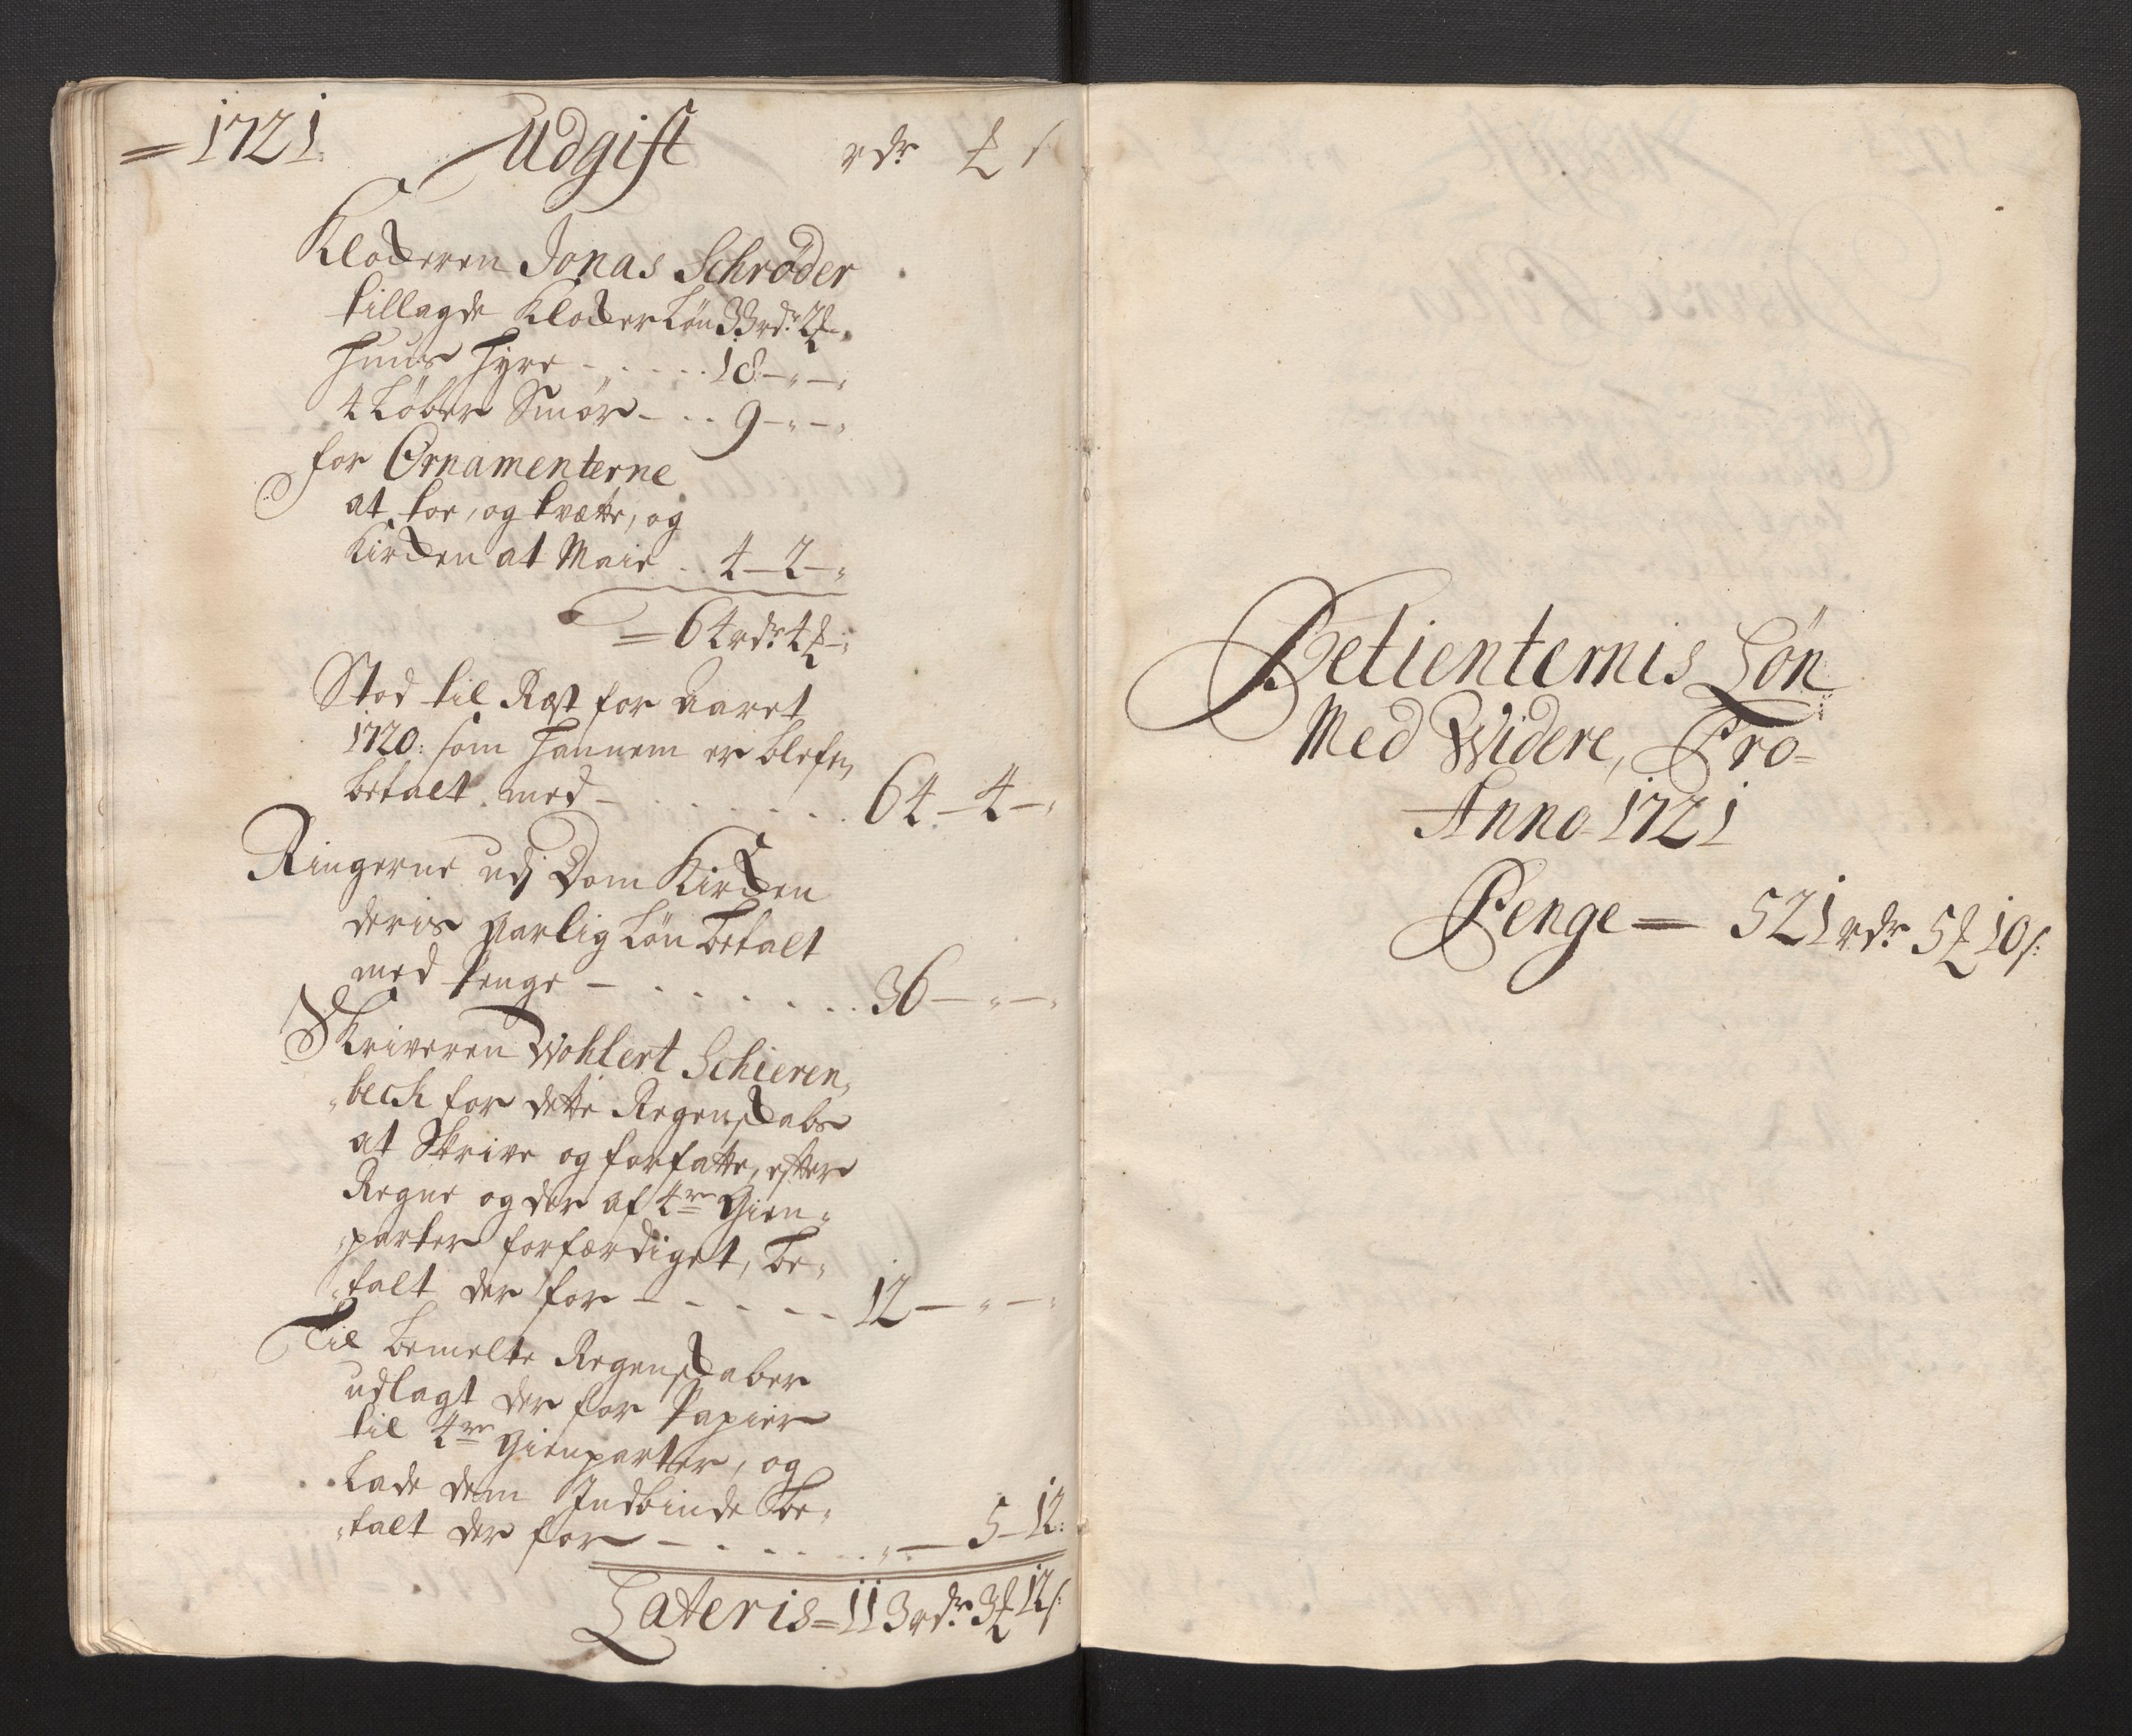 = 1721. Udgift rdr ₰ s
Klockeren Jonas Schrøder
tillagde Klocker Løn 33 rdr: 2 ₰ - "
Huus Hyre - . . . . . 18 - " - "
4 Løber Smør - . . 9 - " - "
for Ornamenterne
at toe, og tvætte, og
Kircken at Maie . . 4 - 2 - "
= 64 rdr: 4 ₰ - "
Stod til Rest for Aaret
1720: som hannem er blefn,
betalt med - . . . . . . . 64 - 4 - "
Ringerne udj Dom Kircken
deris Aarlig Løn betalt
med Penge - . . . . . . . 36 - " - "
Skriveren Wohlert Schieren,
"beck for dette Regenskabs
at Skrive og forfatte, efter
Regne og der af 4re Gien"
"parter forfærdiget, be"
"talt der for - - - - - - 12 - " - "
Til bemelte Regenskaber
udlagt der for Papier
til 4re Gienparter, og
Lade dem Indbinde be"
"talt der for - . . . . . . " - 5 - 12:
Lateris = 113 rdr: 3 ₰ 12 s:
Betienternis Løn
Med Widere, Pro=
Anno 1721
Penge = 521 rdr 5 ₰ 10 s: